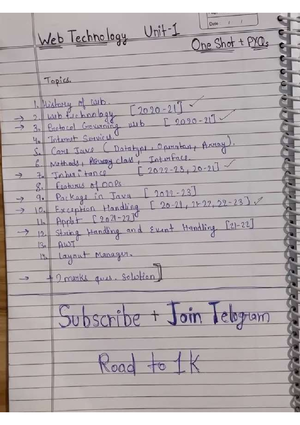 Web Technology Unit-1
One Shot + PYQs
Topics
1. History of web.
→ 2. Web technology [2020-21] ✓
→ 3. Protocol Governing web [2020-21] ✓
4. Internet Services
5. Core Java (Datatype, Operators, Array).
6. Methods, class, Interface.
→ 7. Inheritance [2022-23, 20-21] ✓
8. Features of OOPs
→ 9. Package in Java [2022-23]
→ 10. Exception Handling [20-21, 21-22, 22-23] ✓
11. Applet [2021-22]
→ 12. String Handling and Event Handling [21-22]
13. AWT
Layout Manager.
→ + 2 marks ques. Solution]
Subscribe + Join Telegram
Road to 1K